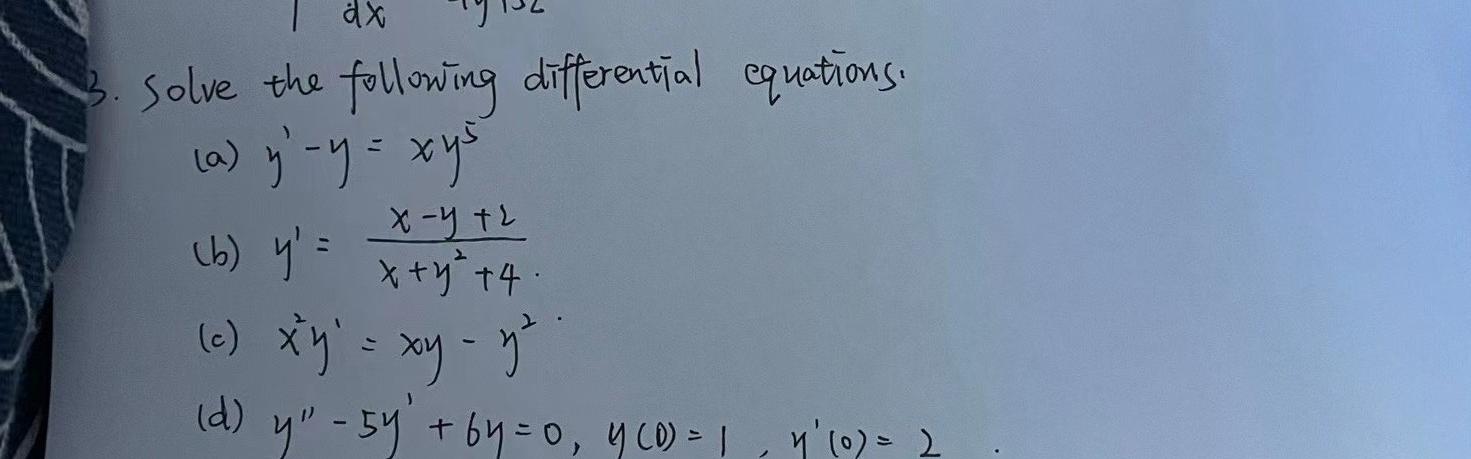 dx
3. Solve the following differential equations.
(a) y' - y = xy⁵
(b) y' = \frac{x - y + 2}{x + y² + 4}.
(c) x²y' = xy - y².
(d) y'' - 5y' + 6y = 0, y(0) = 1, y'(0) = 2.